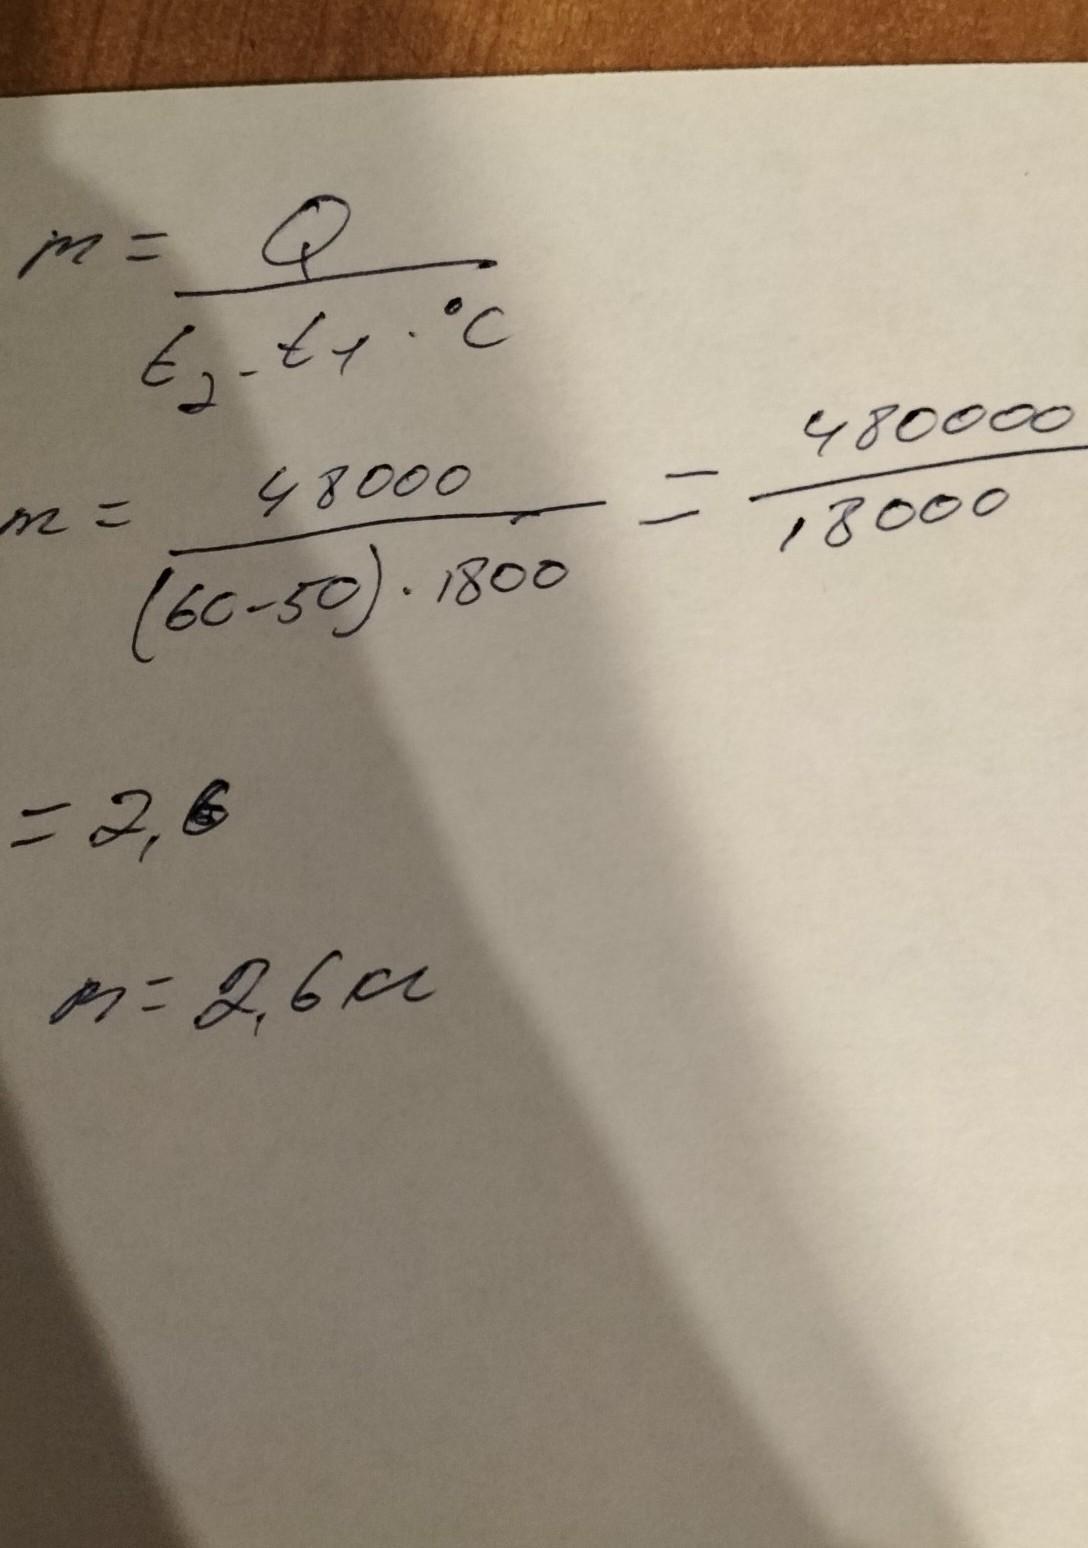 m = Q / t₂ - t₁ · °C
m = 48000 / (60-50) · 1800 = 480000 / 18000
= 2,6
m = 2,6 кг